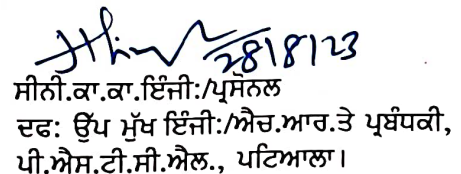 28/8/23
ਸੀਨੀ.ਕਾ.ਕਾ.ਇੰਜੀ:/ਪ੍ਰਸੋਨਲ
ਦਫ: ਉੱਪ ਮੁੱਖ ਇੰਜੀ:/ਐਚ.ਆਰ.ਤੇ ਪ੍ਰਬੰਧਕੀ,
ਪੀ.ਐਸ.ਟੀ.ਸੀ.ਐਲ., ਪਟਿਆਲਾ।